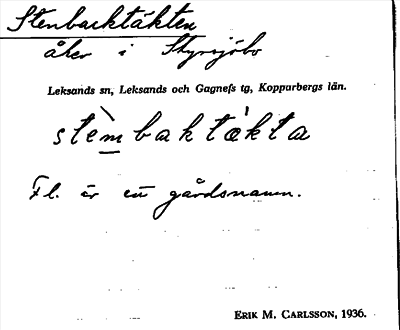 Stenbacktäkten
åker i Styrsjöbo
Leksands sn, Leksands och Gagnefs tg, Kopparbergs län.
stèmbaktǽkta
Fl. är ett gårdsnamn.
ERIK M. CARLSSON, 1936.